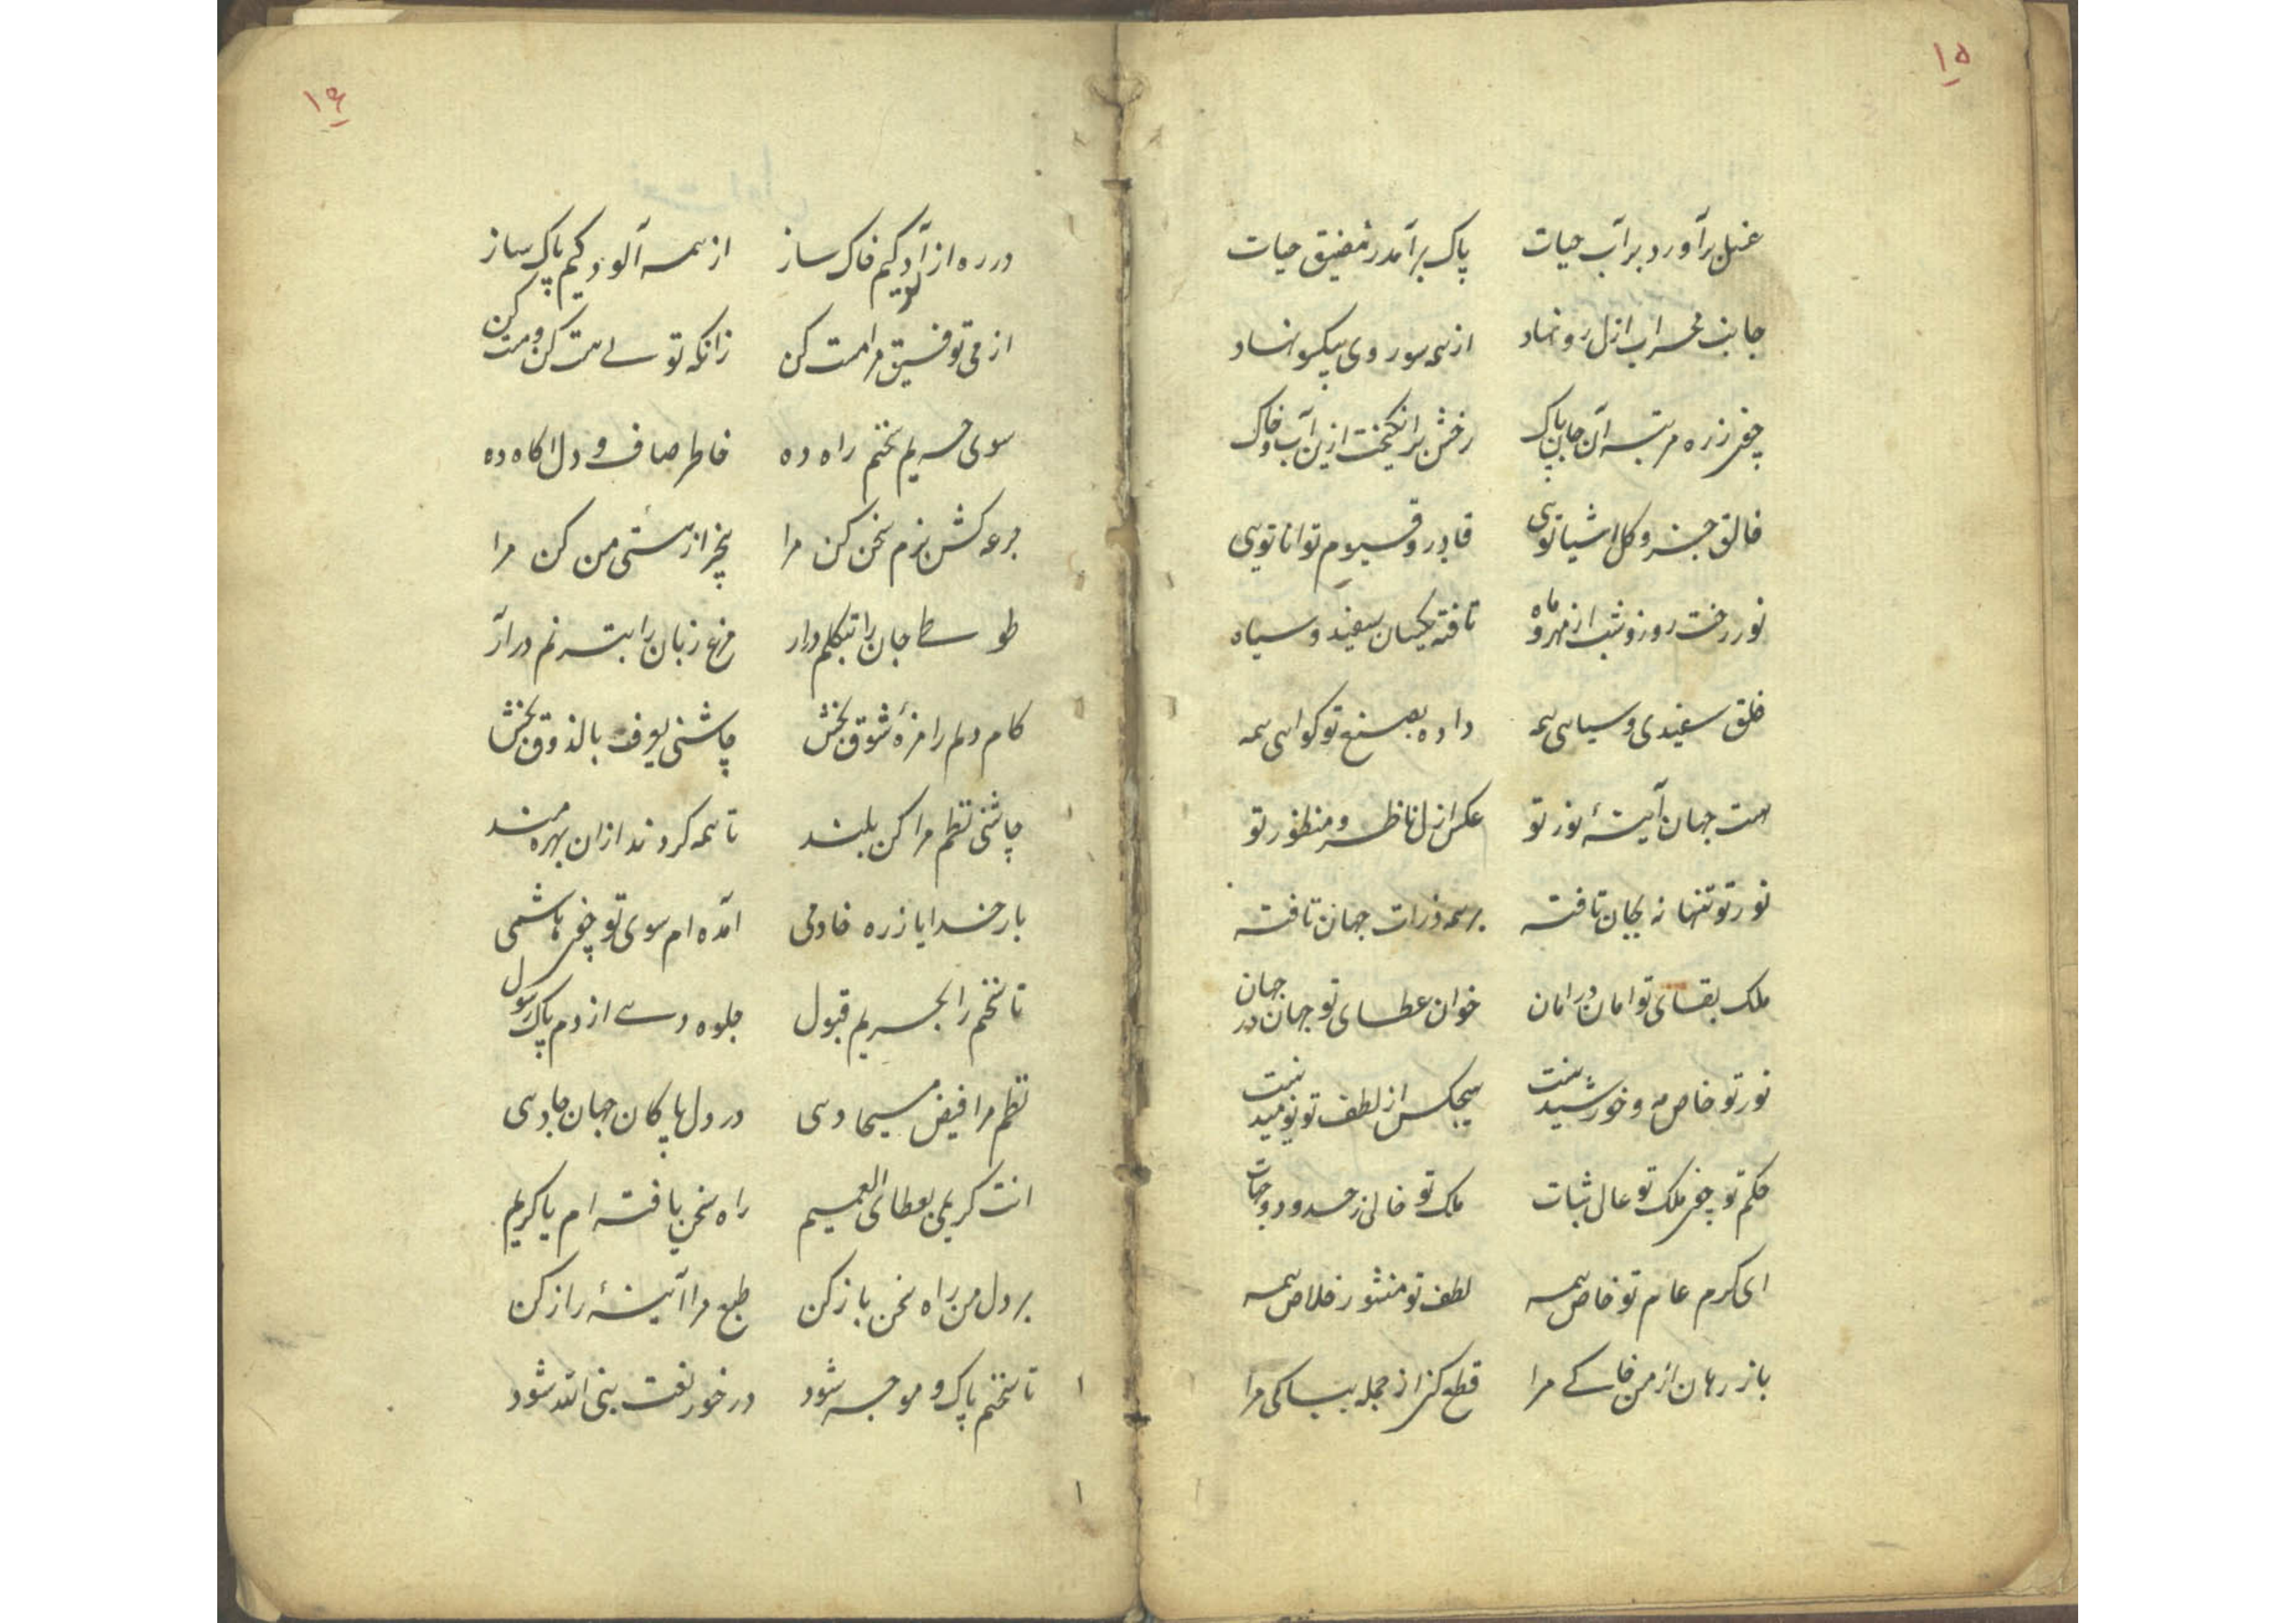 ۱۵
غسل برآورد برآب حیات پاک برآمد ز مضیق حیات
جانب محراب ازل رو نهاد از همه سو روی بیکسو نهاد
چون ز ره مرتبه آن جان پاک رخش برانگیخت ازین آب و خاک
خالق جزو و کل اشیا تویی قادر و قیوم توانا تویی
نور رخت روز و شب از مهر و ماه تافته یکسان سفید و سیاه
خلق سفیدی و سیاهی همه داده بصنع تو کواهی همه
هست جهان آینهٔ نور تو عکس ازل ناظر و منظور تو
نور تو تنها نه بجان تافته بر همه ذرات جهان تافته
ملک بقای تو امان در امان خوان عطای تو جهان در جهان
نور تو خاص مه و خورشید نیست هیچکس از لطف تو نومید نیست
حکم تو چون ملک تو عالی ثبات ملک تو خالی ز حدود و جهات
ای کرم عام تو خاص همه لطف تو منشور خلاص همه
باز رهان از من خاکی مرا قطع کن از جمله بیباکی مرا
۱۶
در ره از آلودکیم خاک ساز از همه آلودکیم پاک ساز
از می توفیق مرا مست کن زانکه تویی هست کن و مست کن
سوی حریم سخنم راه ده خاطر صاف و دل اکاه ده
جرعه کش بزم سخن کن مرا بیخبر از هستی من کن مرا
طوطی جان را بتکلم درار مرغ زبان را بترنم درآر
کام دلم را مزهٔ شوق بخش چاشنی بالذوق بخش
چاشنی نظم مرا کن بلند تا همه کردند ازان بهره مند
بار خدایا ز ره خادمی آمده ام سوی تو چون هاشمی
تا سخنم را بحریم قبول جلوه دهی از دم پاک رسول
نظم مرا فیض مسیحا دهی در دل پاکان جهان جا دهی
انت کریمی بعطای العمیم راه سخن یافته ام یا کریم
بر دل من راه سخن باز کن طبع مرا آینهٔ راز کن
تا سخنم پاک و موجه شود در خور نعت نبی الله شود